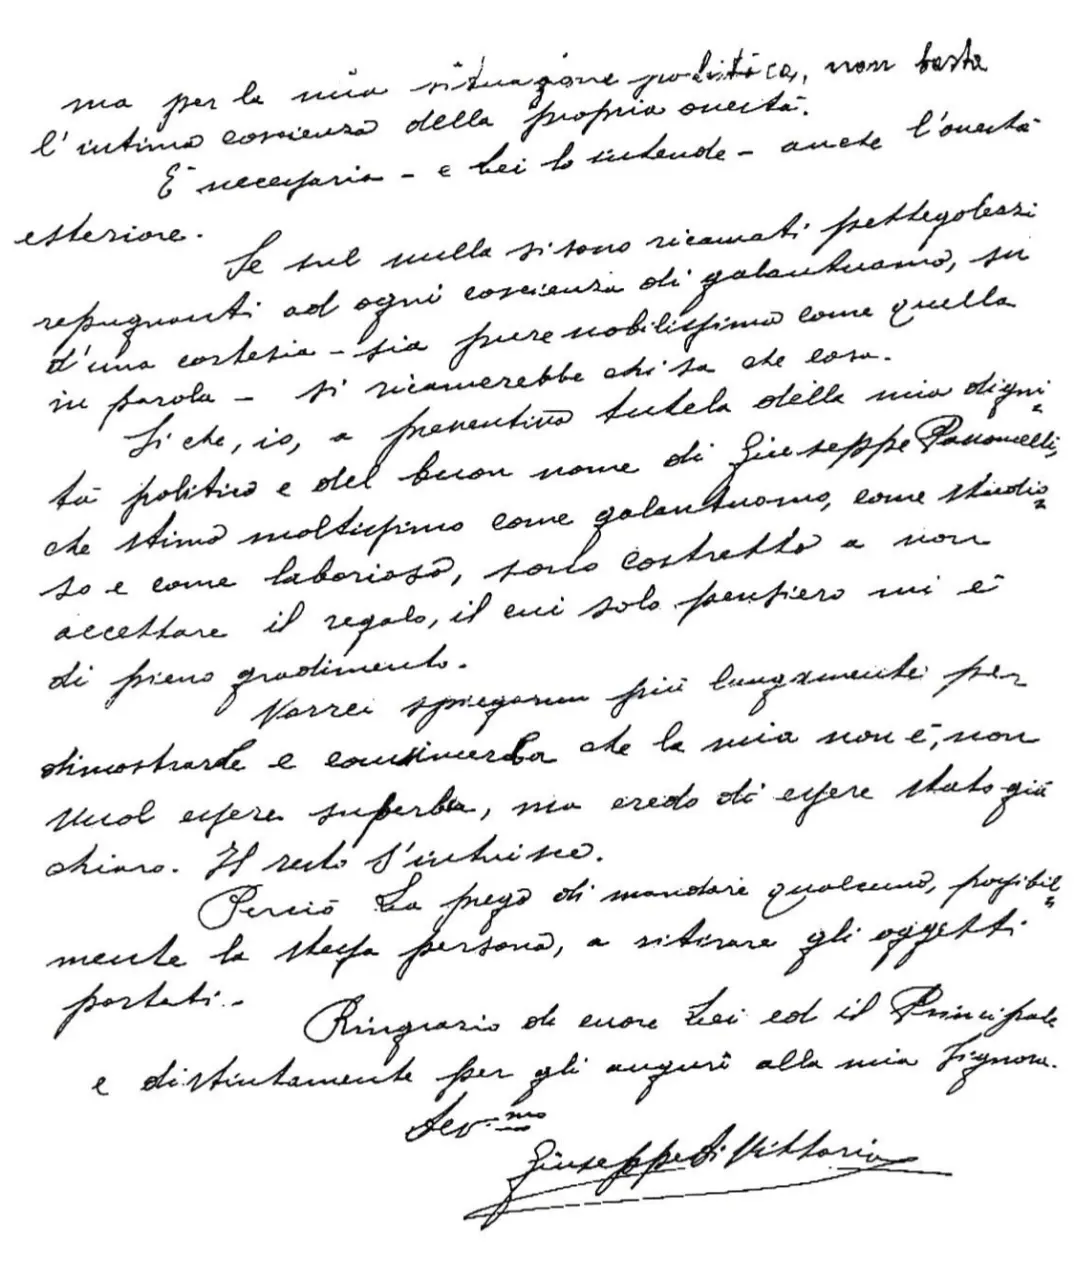 ma per la mia situazione politica, non basta
l'intima coscienza della propria onestà.
È necessaria – e Lei lo intende – anche l'onestà
esteriore.
Se sul nulla si sono ricamati pettegolezzi
repugnanti ad ogni coscienza di galantuomo, su
d'una cortesia – sia pure nobilissima come quella
in parola – si ricamerebbe chi sa che cosa.
Si che, io, a preventiva tutela della mia digni=
tà politica e del buon nome di Giuseppe Pavoncelli,
che stimo moltissimo come galantuomo, come studio=
so e come laborioso, sono costretto a non
accettare il regalo, il cui solo pensiero mi è
di pieno gradimento.
Vorrei spiegarmi più lungamente per
dimostrarLe e convincerLa che la mia non è, non
vuol essere superbia, ma credo di essere stato già
chiaro. Il resto s'intuisce.
Perciò La prego di mandare qualcuno, possibil=
mente la stessa persona, a ritirare gli oggetti
portati.-
Ringrazio di cuore Lei ed il Principale
e distintamente per gli auguri alla mia Signora.
Dev.mo
Giuseppe Di Vittorio